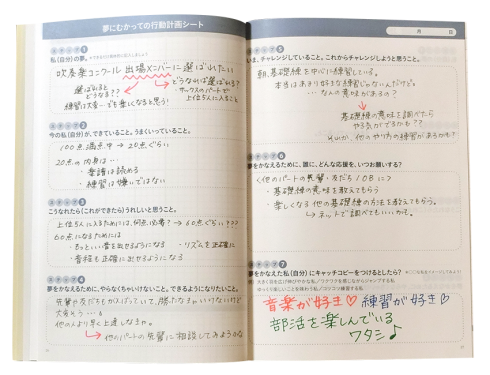 夢にむかっての行動計画シート
ステップ1
私(自分)の夢。
吹奏楽コンクール 出場メンバーに選ばれたい
選ばれると
どうなる??
練習は大変…でも楽しくなると思う!
どうなれば選ばれる?
サックスのパートで
上位5人に入ること
ステップ2
今の私(自分)が、できていること。うまくいっていること。
100点満点中→20点ぐらい
20点の内身は…
・楽譜は読める
・練習は嫌いではない
ステップ3
こうなれたら(これができたら)うれしいと思うこと。
上位5人に入るためには、何点必要?→60点ぐらい???
60点になるためには
・もっといい音を出せるようになる ・リズムを正確に
・音程も正確に出せるようになる
ステップ4
夢をかなえるために、やらなくちゃいけないこと。できるようになりたいこと。
先輩や友だちもがんばっていて、勝たなきゃいけないけど
大変そう…💧
他の人より早く上達しなきゃ。
→他のパートの先輩に相談してみようかな
月 日
ステップ5
いま、チャレンジしていること。これからチャレンジしようと思うこと。
朝、基礎練を中心に練習している。
本当はあまり好きな練習じゃないんだけど。
…なんの意味があるの?
基礎練の意味を調べたら
やる気がでるかも??
それとも、他のやり方の練習があるかも?
ステップ6
夢をかなえるために、誰に、どんな応援を、いつお願いする?
〈他のパートの先輩・友だち/OBに〉
・基礎練の意味を教えてもらう
・楽しくなる他の基礎練の方法を教えてもらう。
→ネットで調べてもいいかも。
ステップ7
夢をかなえた私(自分)にキャッチコピーをつけるとしたら?
音楽が好き♡ 練習が好き♡
部活を楽しんでいる
ワタシ♪